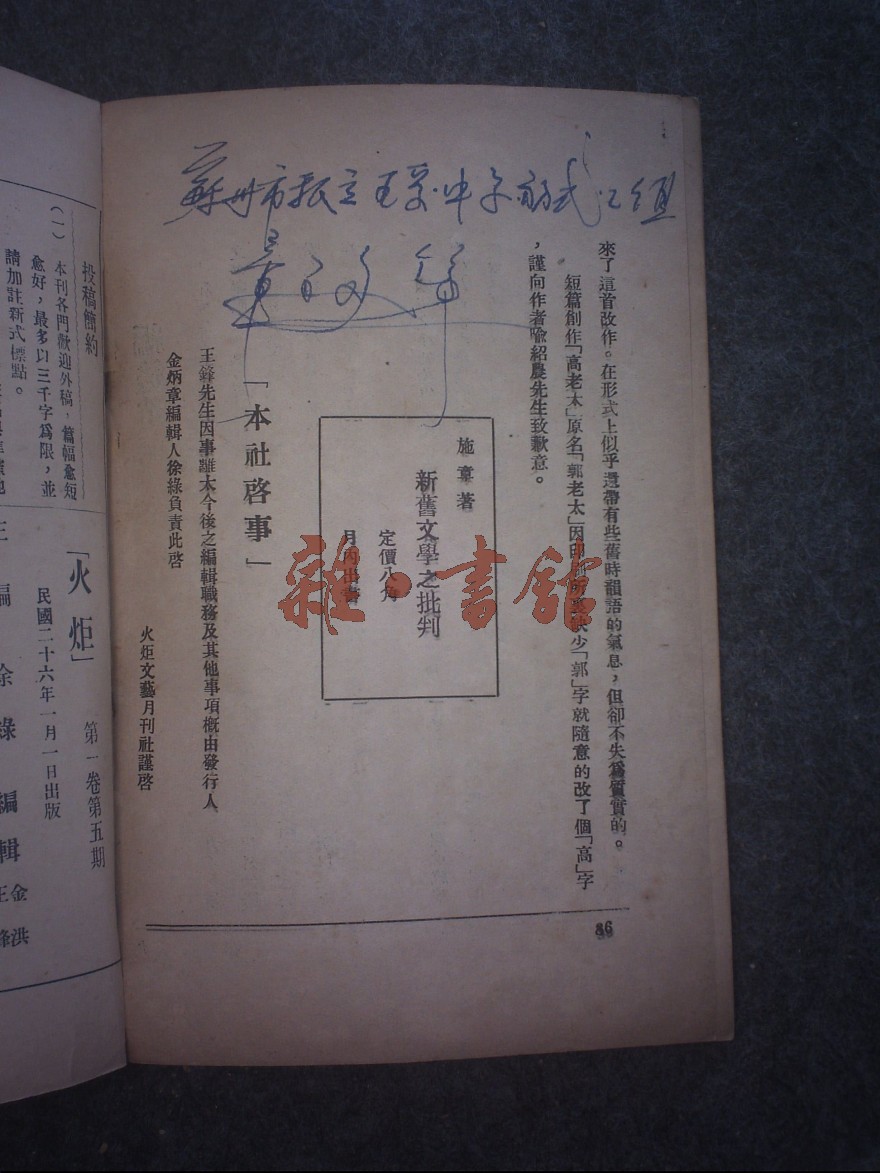 蘇州市
來了這首改作。在形式上似乎還帶有些舊時韻語的氣息，但卻不失爲質實的。
短篇創作「高老太」原名「郭老太」因印刷所裏缺少「郭」字就隨意的改了個「高」字
，謹向作者喩紹農先生致歉意。
施章著
新舊文學之批判
定價八角
月內出書
「本社啓事」
王鋒先生因事離太今後之編輯職務及其他事項概由發行人
金炳章編輯人徐綠負責此啓
火炬文藝月刊社謹啓
86
雜·書館
投稿簡約
（一） 本刊各門歡迎外稿，篇幅愈短
愈好，最多以三千字爲限，並
請加註新式標點。
「火炬」 第一卷第五期
民國二十六年一月一日出版
主編 徐綠
編輯 金洪
王鋒